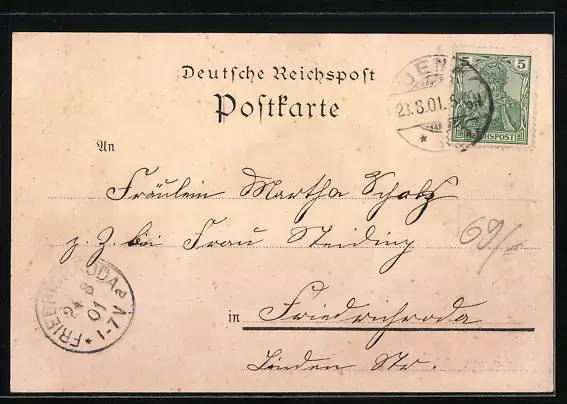 Deutsche Reichspost
Postkarte
JENA
23.8.01.
5
REICHSPOST
An
Fräulein Martha Scholz
z. Z bei Frau Steiding
69/
in Friedrichroda
Linden Str.
FRIEDRICHRODA
24 8
01
1-7V